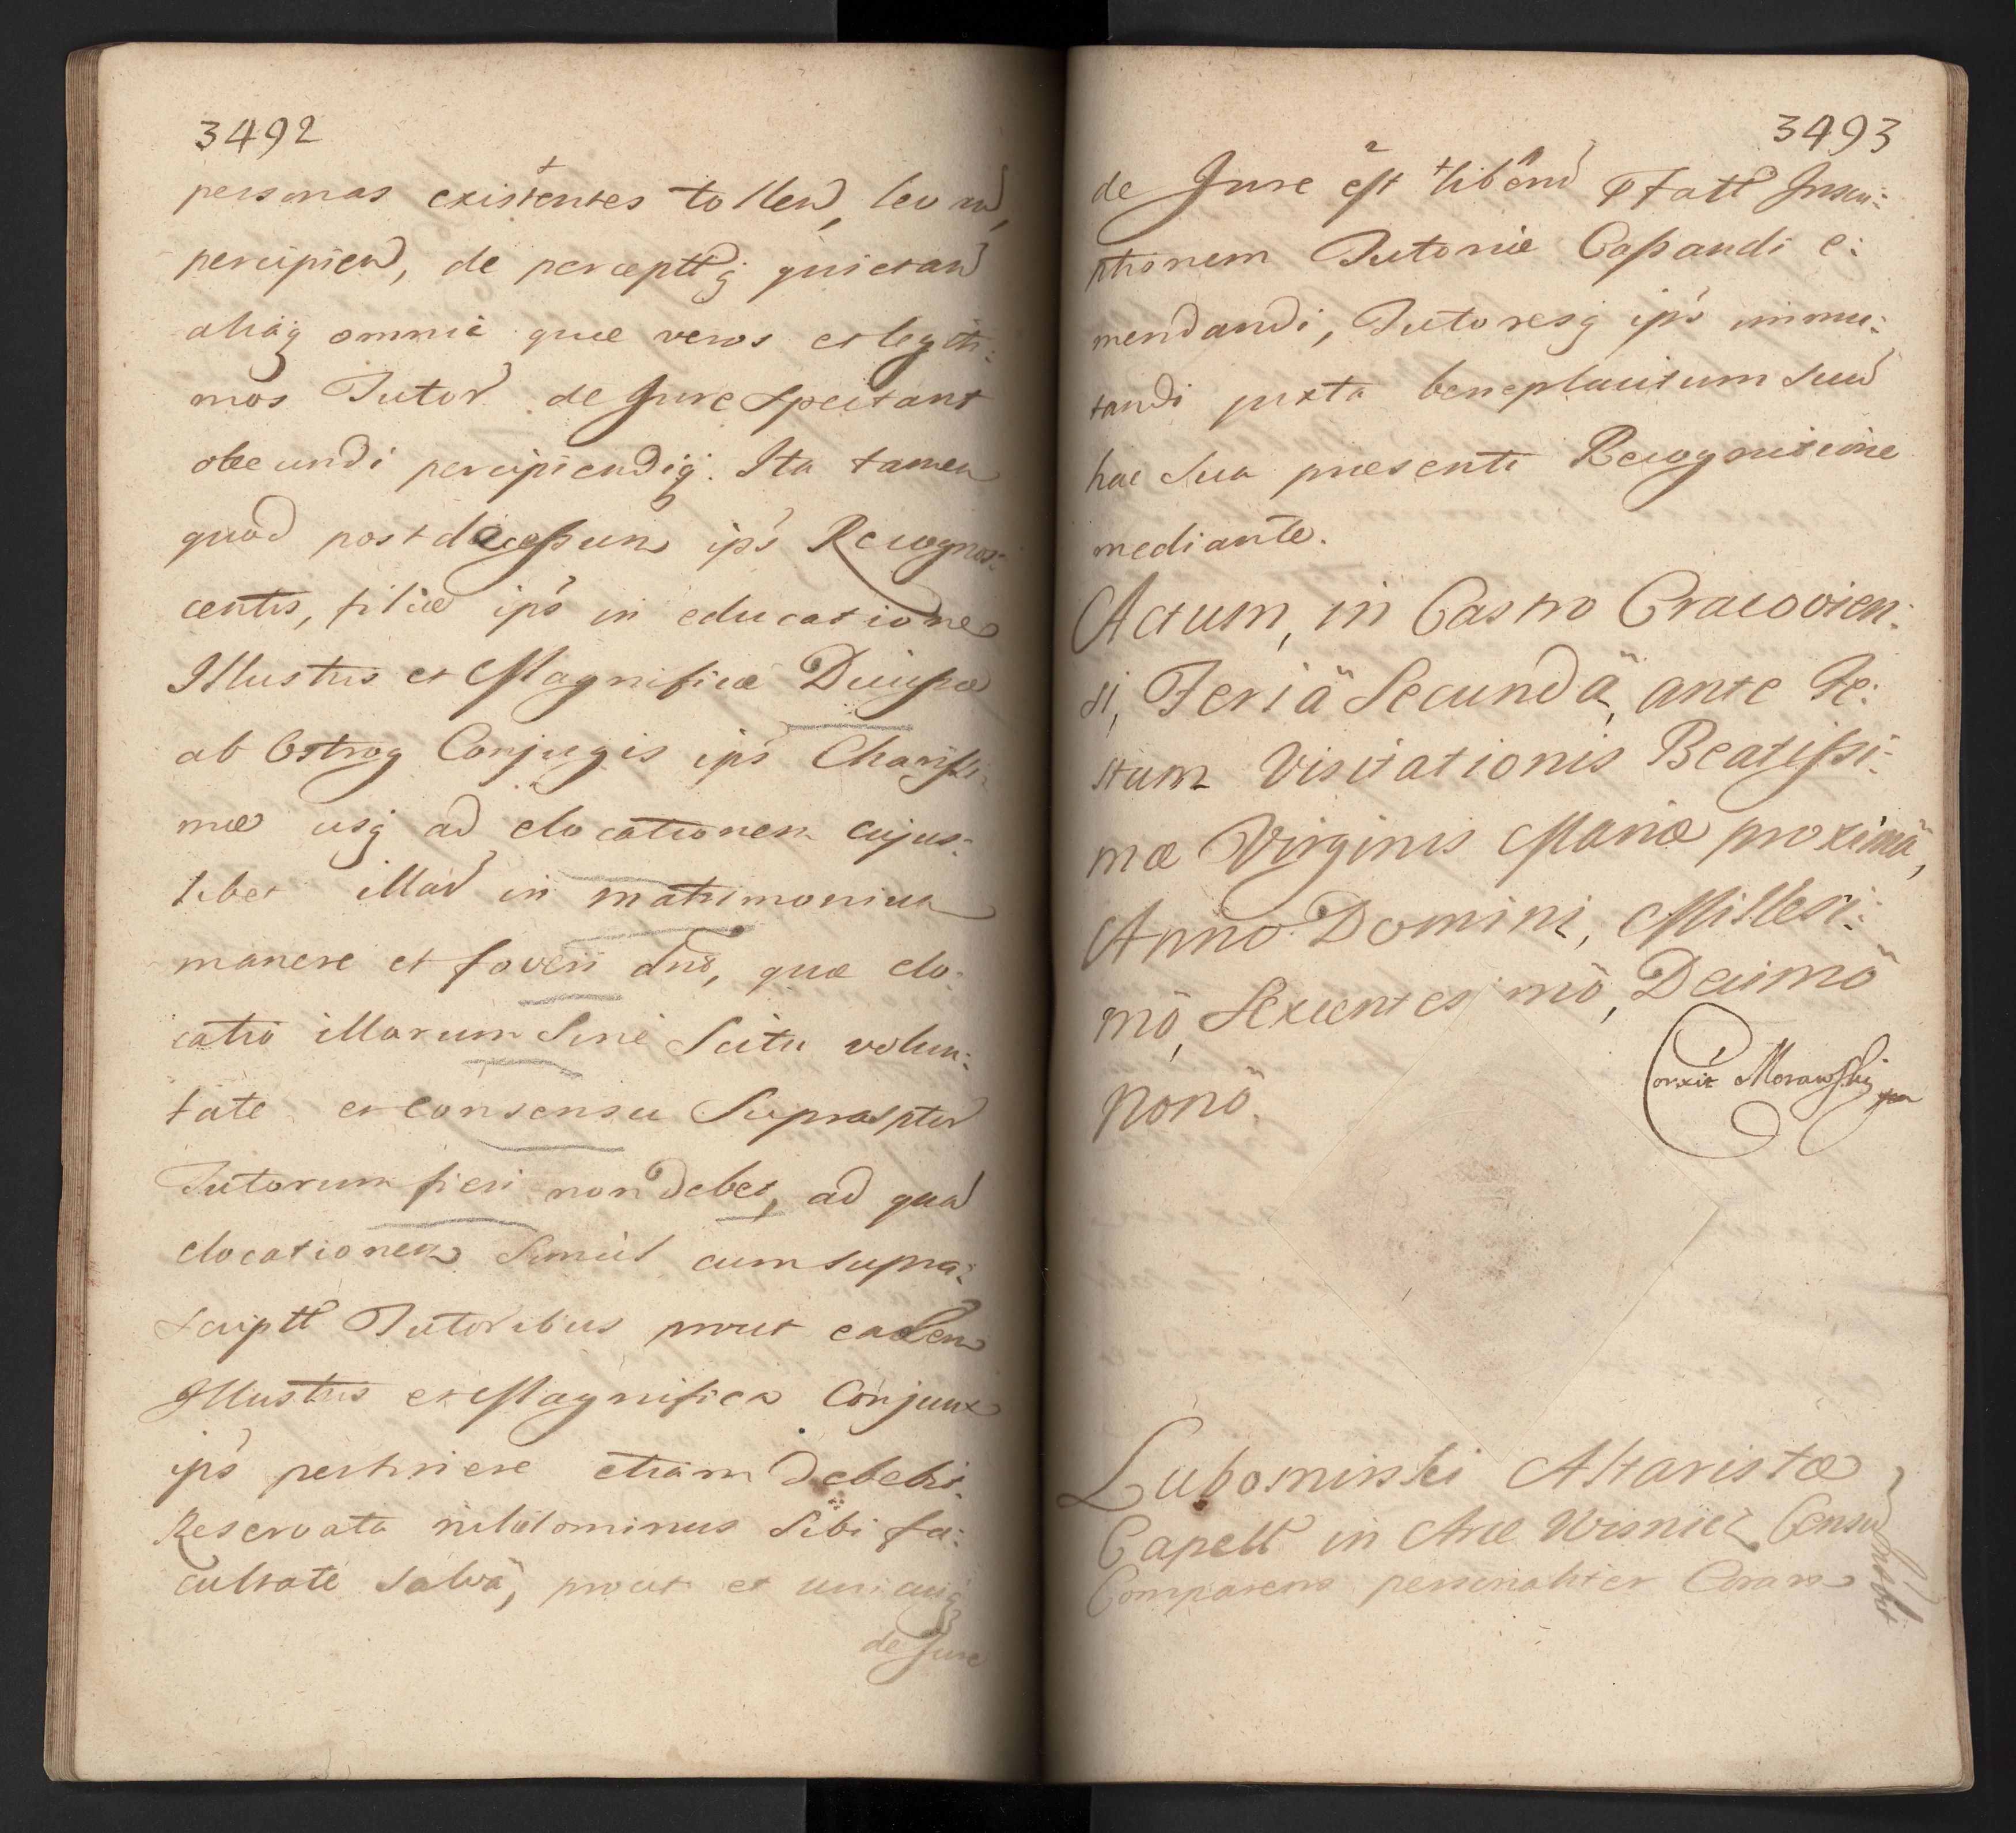 3492
personas existentes tollend, levand,
percipiend, de perceptt q quietand
aliaq omnia quæ veros et legiti:
mos Tutor de Jure spectant
obeundi percipiendiq. Ita tamen
quod post decessum ips Recognos:
centis, filiæ ips in educatione
Illustris et Magnificæ Ducissæ
ab Ostrog Conjugis ips Charissi:
mæ usq ad elocationem cujus:
libet illar in matrimonium
manere et foveri , quæ elo:
catio illarum sine Scitu volun:
tate et consensu Suprasptor
Tutorum fieri non debet, ad qua
elocationem Simul cum supra:
scriptt Tutoribus prout eadem
Illustris et Magnifica Conjunx
ips pertinere etiam debebit.
Reservata nihilominus Sibi fa:
cultate salvâ, prout et unicuiq
de Jure
3493
de Jure est Inscri:
ptionem Tutoriæ Cassandi e:
mendandi, Tutoresq ips immu:
tandi juxta beneplacitum suu
hac sua præsenti Recognitione
mediante.
Actum, in Castro Cracovien:
si, Feriä Secundä, ante Fe:
stum Visitationis Beatissi:
mæ Virginis Mariæ proximä,
Anno Domini, Millesi:
mö, Sexcentesimö, Decimö
Nonö.
Corxit Morawski
Lubomirski Altaristæ
Capell in Arce Wisnicz Censu
Comparens personaliter Coram